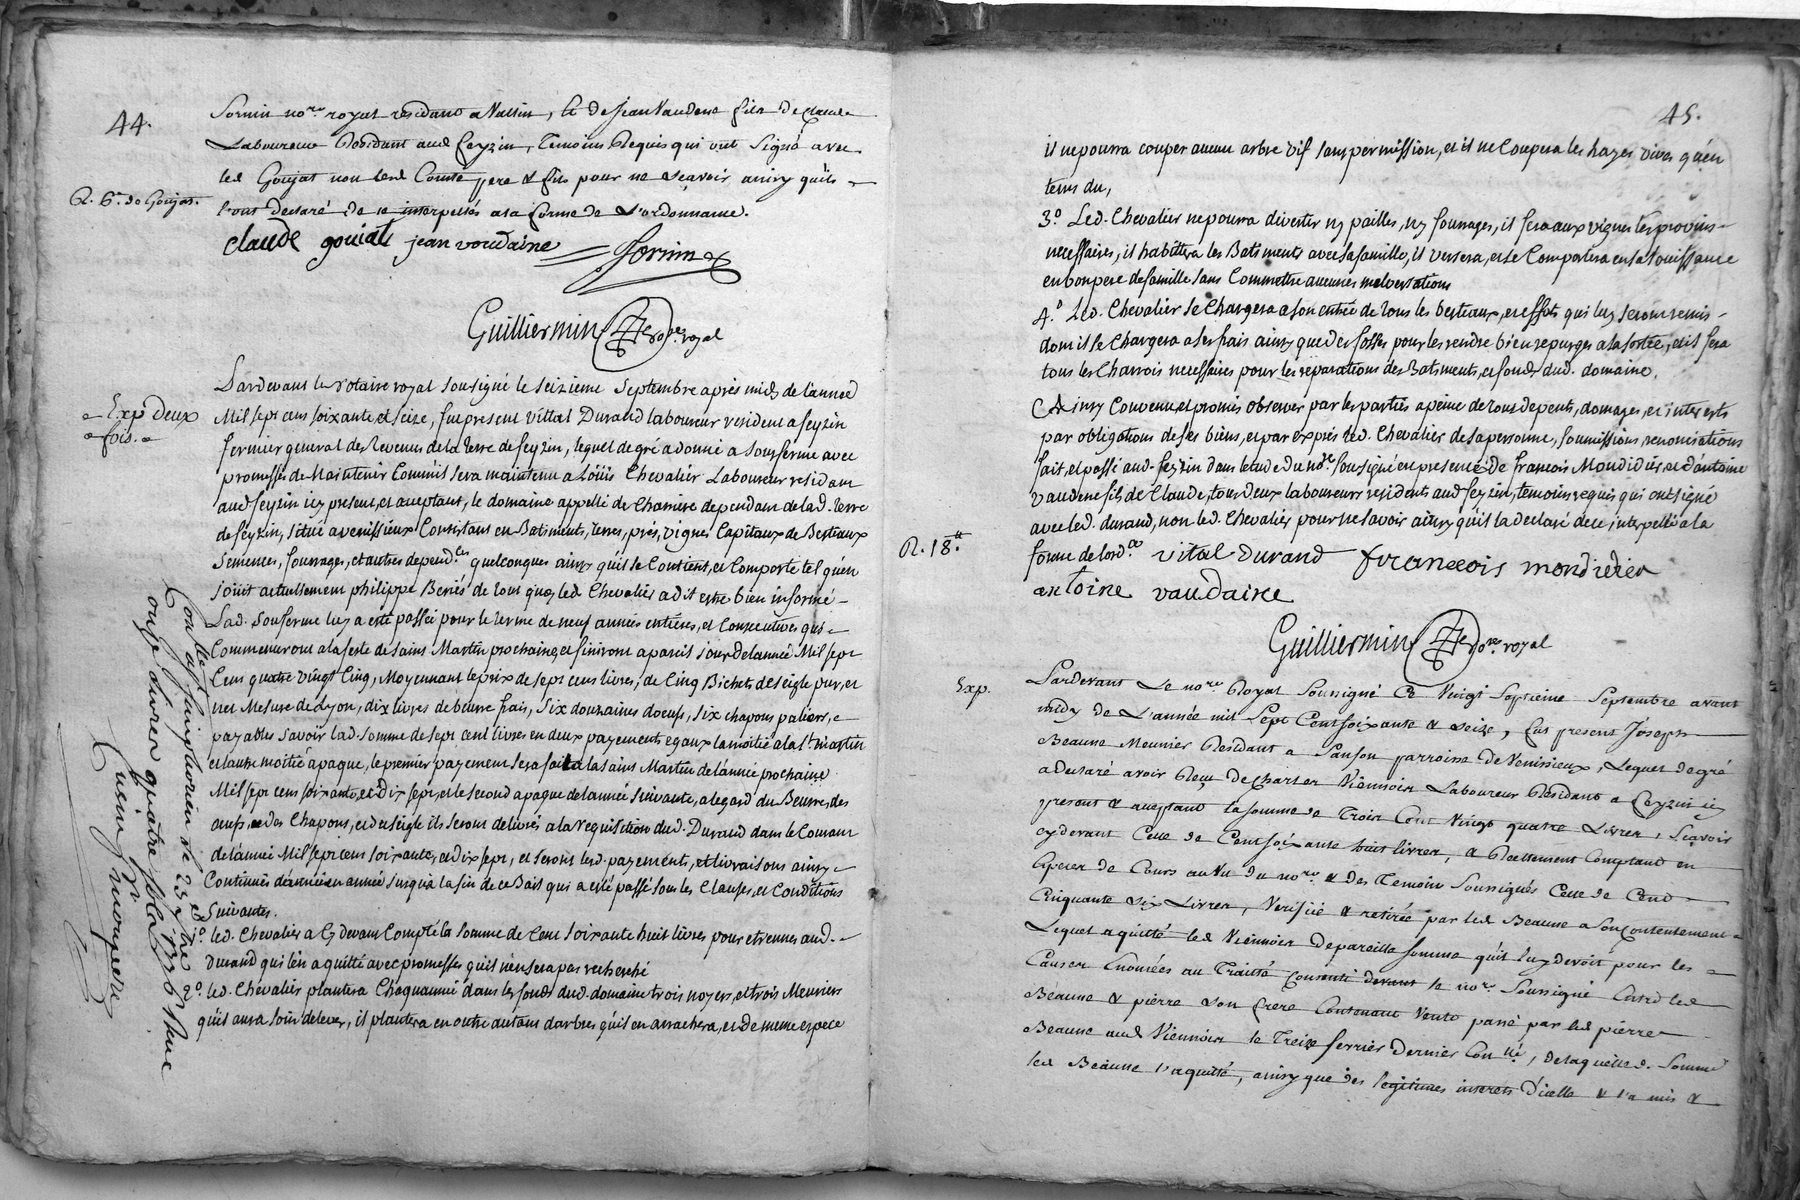 44.
Sornin no.re royal residant a Vallin, & de Jean Vaudene fils de Claude
Laboureur Residant aud Feyzin, Temoins Requis qui ont Signé avec
led Goujat non lesd Comte pere & fils pour ne sçavoir ainsy qu'ils
l'ont declaré de ce interpellés a la forme de L'ordonnance.
R. 6.tt de Goujat.
claude goujat jean voudaine Sornin
Guilliermin No.re royal
Pardevant le Notaire royal Sousigné le Seizieme Septembre après midy de l'année
Exp deux
fois.
Mil sept cens soixante, et seize, fut present Vittal Durand laboureur resident a feyzin
fermier general des Revenus de la Terre de feyzin, lequel de gré a donné a Sousferme avec
promesses de Maintenir Comm'il sera maintenu a Loüis Chevalier Laboureur residant
aud feyzin icy present, et acceptant, le domaine appellé de Charriere dependant de lad. Terre
de feyzin, situé a venissieux Consistant en Batiments, terres, prés, vignes Capitaux de Besteaux
Semences, fourrages, et autres depend.ces quelconques ainsy qu'il se Contient, et Comporte tel qu'en
joüit actuellement philippe Beriés de tout quoy led Chevalier a dit estre bien informé
Lad. Sousferme luy a esté passée pour le terme de neuf années entiéres, et Consecutives qui
Commenceront a la feste de saint Martin prochaine, et finiront a pareil jour de l'année Mil sept
Cens quatre vingt Cinq, Moyennant le prix de sept cens livres, de Cinq Bichets de seigle pur, et
net Mesure de Lyon, dix livres de beurre frais, Six douzaines d'oeufs, six chapons paliers,
payables savoir lad. somme de sept cent livres en deux payements egaux la moitié a la S.t martin
et l'autre moitié a paque, le premier payement sera fait a la saint Martin de l'année prochaine
Mil sept cens soixante, et Dix sept, et le second a paque de l'année suivante, a legard du Beurre, des
oeufs, et des Chapons, et du seigle ils seront delivrés a la requisition dud. Durand dans le Courant
de l'année Mil sept cens soixante, et dix sept, et seront lesd. payements, et livraisons ainsy
Continués d'année en année jusqu'a la fin de ce Bail qui a esté passé sous les Clauses, et Conditions
Suivantes.
1.o led. Chevalier a Cy devant Compté la somme de Cent soixante huit livres pour etrennes aud.
Durand qui l'en a quitté avec promesses qu'il n'en sera pas recherché
2.o led. Chevalier plantera Chaqu'année dans les fonds dud. domaine trois noyers, et trois Meuriers
qu'il aura soin d'elever, il plantera en outre autant d'arbres qu'il en arrachera, et de meme espece
45.
il ne pourra couper aucun arbre vif sans permission, et il ne Coupera les hayes vives qu'en
tems du,
3.o Led. Chevalier ne pourra divertir ny pailles, ny fourrages, il fera aux vignes les provins
necessaires, il habittera les Batiments avec sa famille, il versera, et se Comportera en sa Jouissance
en bon pere de famille sans Commettre aucunes malversations
4.o Led. Chevalier se Chargera a son entrée de tous les besteaux, et effets qui luy seront remis
dont il se Chargera a ses frais ainsy que des fosses pour les rendre bien repurges a la sortée, et il fera
tous les Charrois necessaires pour les réparations des Batiments, et fonds dud. domaine.
Ainsy Convenu, et promis observer par les parties a peine de tous depents, domages, et interests
par obligations de ses biens, et par exprés led. Chevalier de sa personne, soumissions, renonciations
fait, et passé aud. feyzin dans l'etude du no.re sousigné en presence de françois Mondidier, et d'antoine
Vaudene fils de Claude, tous deux laboureurs residents aud feyzin, temoins requis qui ont signé
avec led. durand, non led. Chevalier pour ne savoir ainsy qu'il l'a declaré de ce interpellé a la
R. 18.tt
forme de l'ord.ce vital Durand francois mondidier
antoine vaudaine
Guilliermin No.re royal
Exp.
Pardevant Le no.re Royal Soussigné Ce Vingt Septieme Septembre avant
midy de L'année mil Sept Cent soixante & seize, fut present Joseph
Beaune Meunier Residant a Sanson parroisse de Venissieux, Lequel de gré
a declaré avoir Reçu de Charles Viennois Laboureur Residant a Feyzin icy
present & acceptant la somme de Trois Cent Vingt quatre Livres, Sçavoir
cy devant Celle de Cent soixante huit livres, & Reellement Comptant en
Especes de Cours au Vu du no.re & des Temoins Soussignés Celle de Cent
Cinquante six Livres, Verifiée & retirée par led Beaune a son Contentement
Lequel a quitté led Viennois de pareille somme qu'il luy devoit pour les
Causes Enoncées au Traitté consenti devant le no.re Soussigné Entre led
Beaune & pierre son frere Contenant Vente passé par led pierre
Beaune aud Viennois le Treize fevrier dernier Con.llé, de laquelle d. Somme
led Beaune l'a quitté, ainsy que des legitimes interets d'icelle & l'a mis &